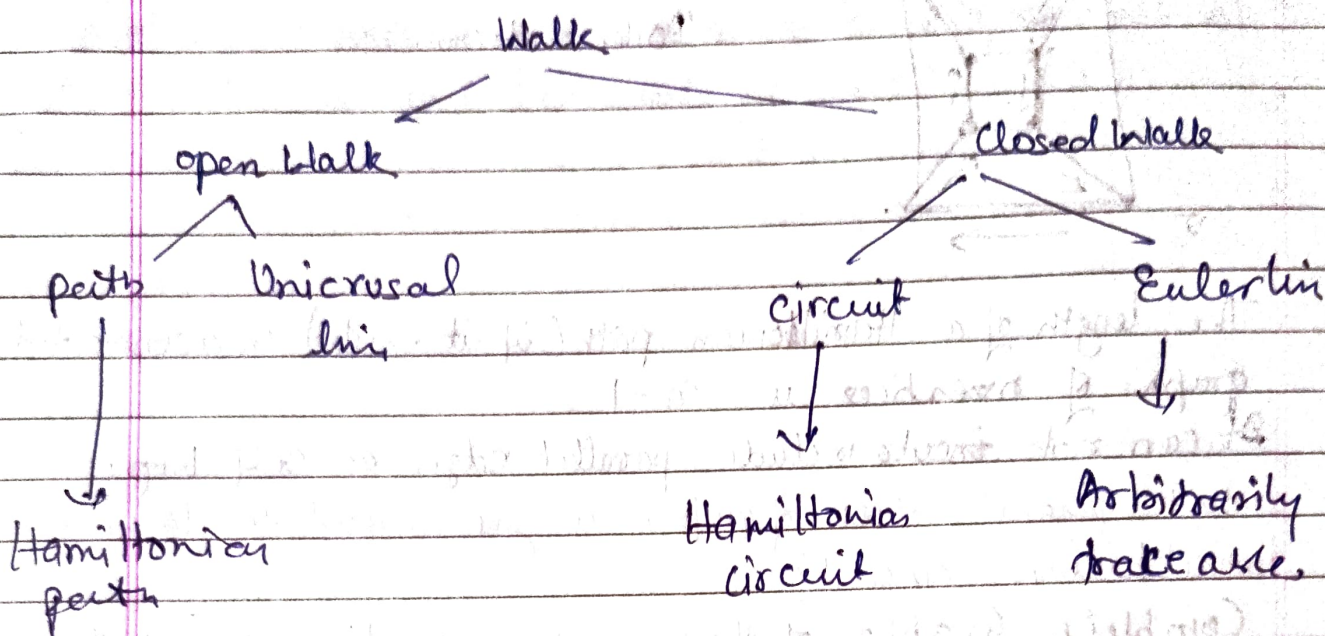 Walk
open Walk
Closed Walk
path
Unicrusal
line
circuit
Euler lin
Hamiltonian
path
Hamiltonian
circuit
Arbitrarily
traceable.